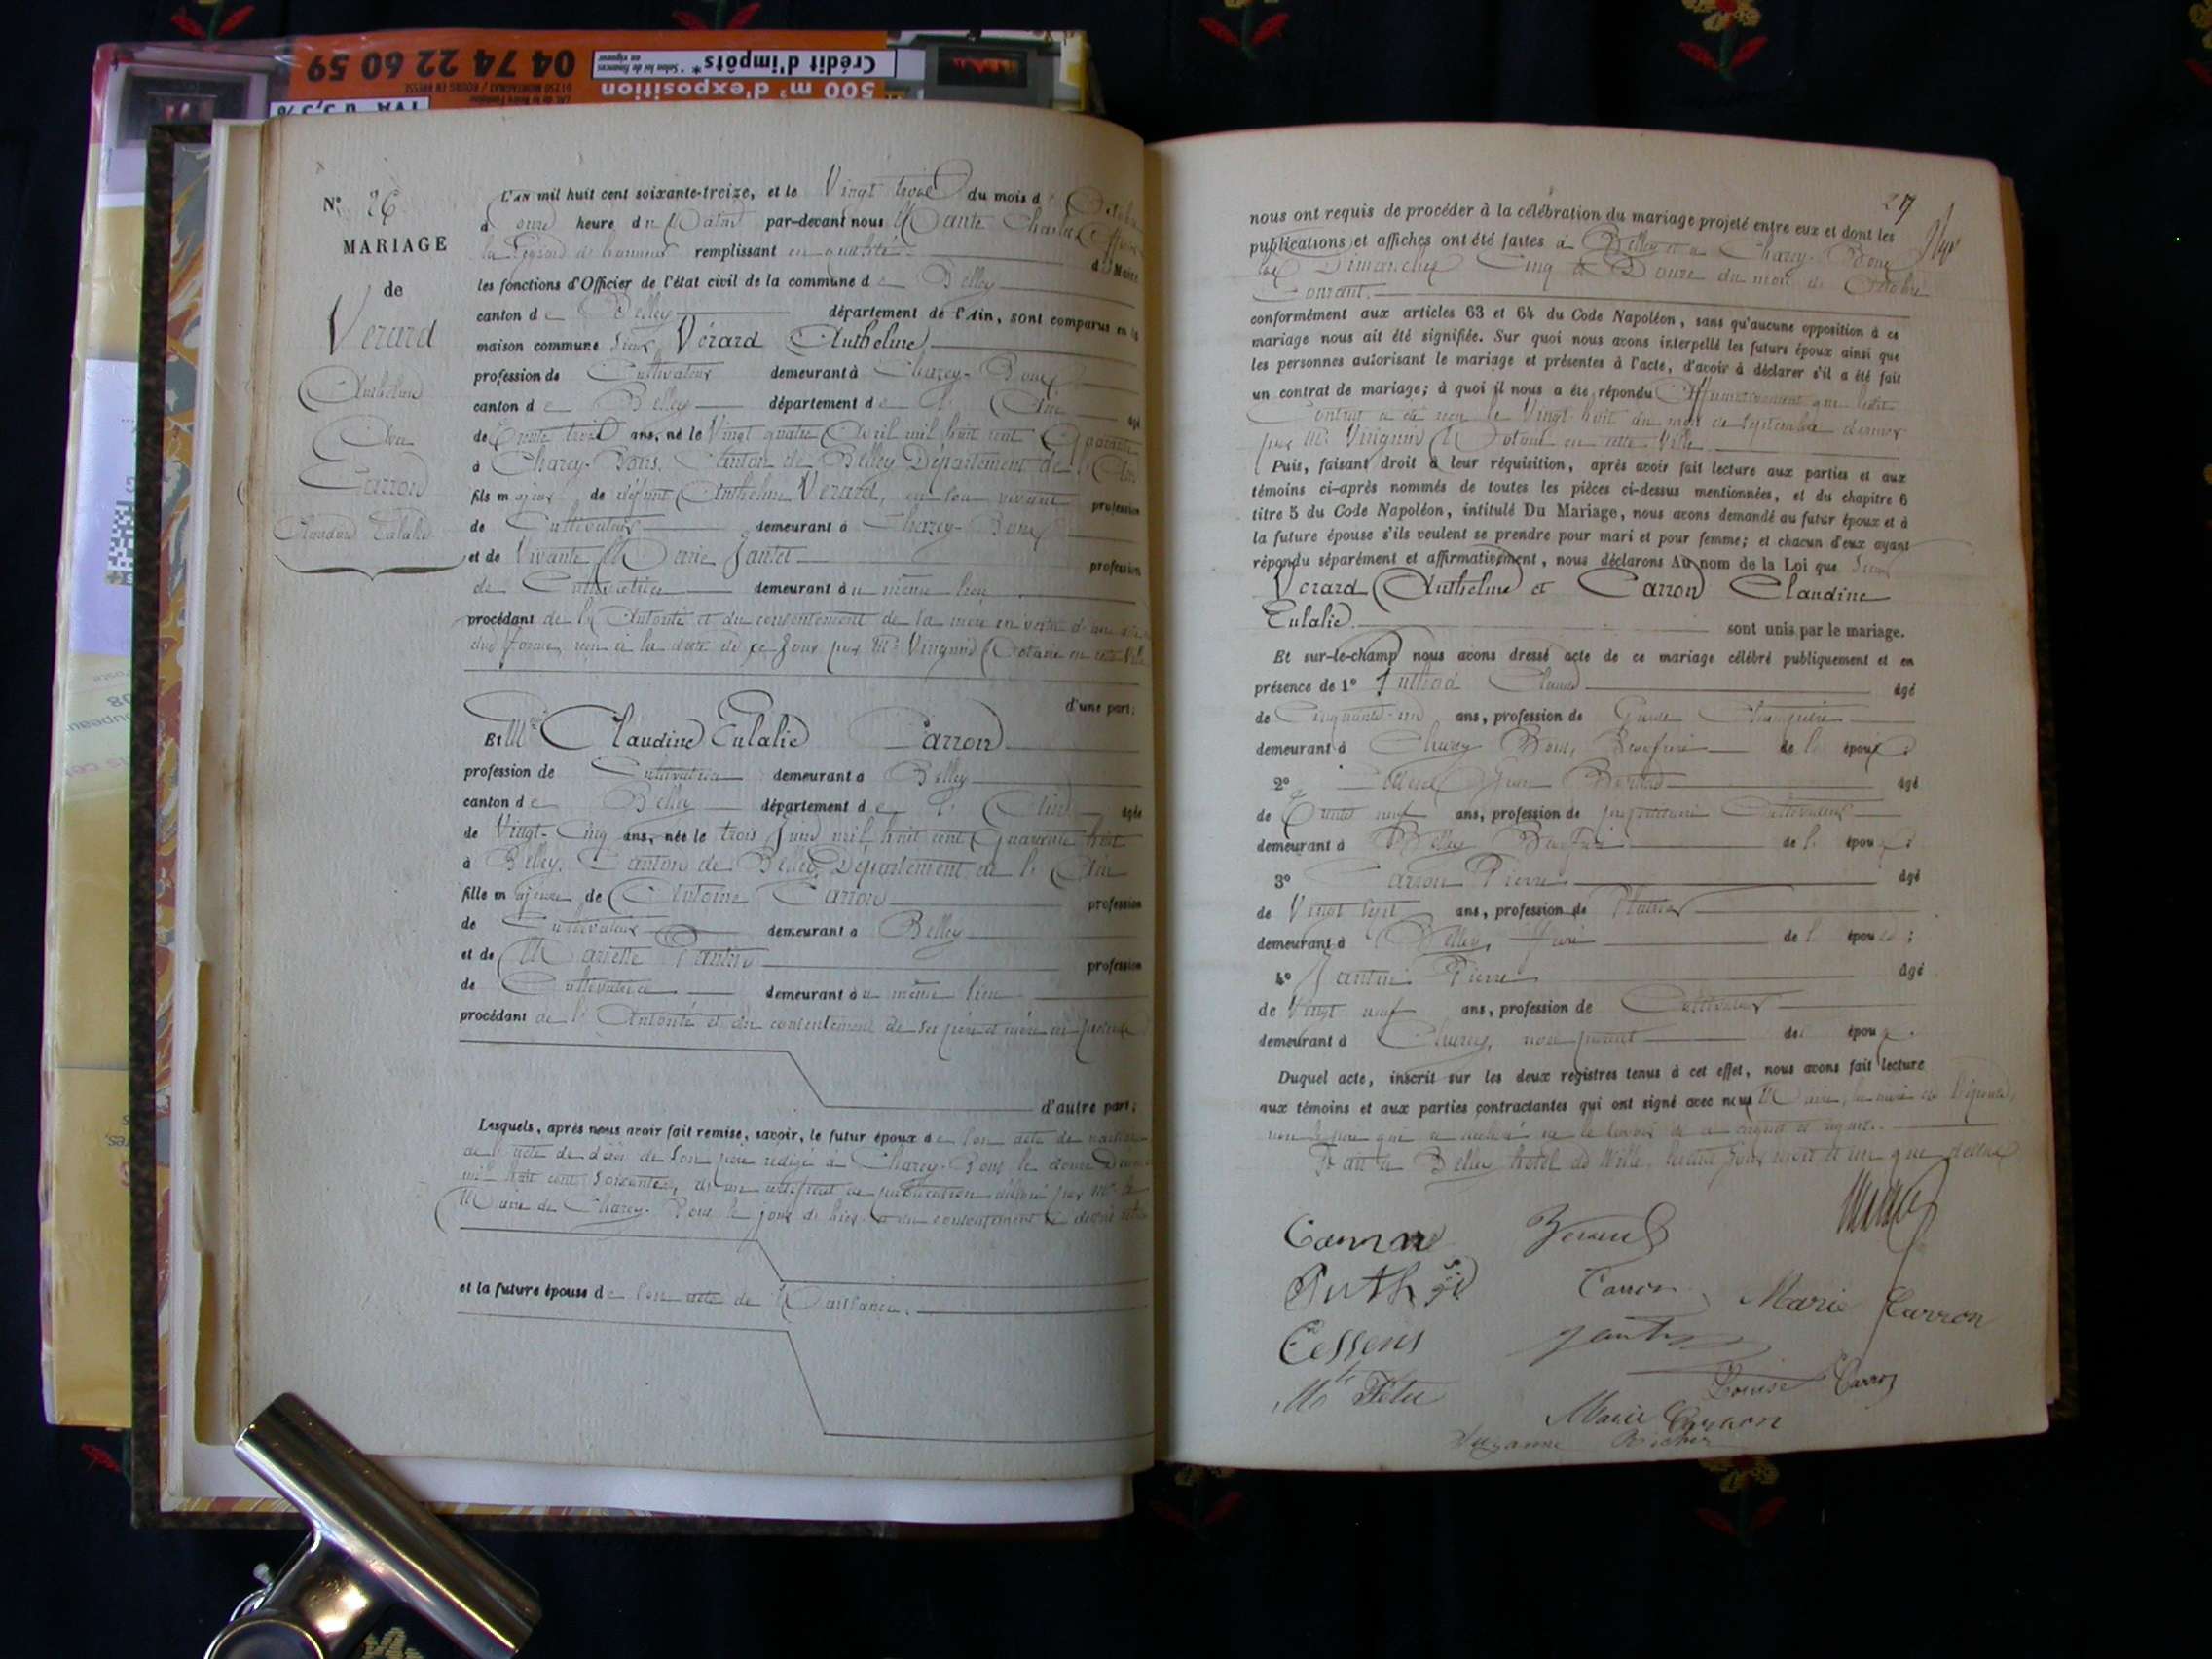 04 74 22 60 59
Crédit d'impôts* * Selon loi de finances en vigueur
01250 MONTAGNAT / BOURG EN BRESSE
500 m² d'exposition
N° 26
MARIAGE
de
Verard
Anthelme
Avec
Carron
Claudine Eulalie
L'an mil huit cent soixante-treize, et le Vingt trois du mois d'Octobre
à onze heure du Matin par-devant nous Charles
la Légion d'honneur remplissant en qualité de Maire
les fonctions d'Officier de l'état civil de la commune de Belley
canton de Belley département de l'Ain, sont comparus en la
maison commune Sieur Vérard Anthelme
profession de Cultivateur demeurant à Chazey-Bons
canton de Belley département de l'Ain âgé
de Trente trois ans, né le Vingt quatre Avril mil huit cent Quarante
à Chazey-Bons, Canton de Belley Département de l'Ain
fils majeur de défunt Anthelme Verard, en son vivant profession
de Cultivateur demeurant à Chazey-Bons
et de Vivante Marie Jantet profession
de Cultivatrice demeurant au même lieu
procédant de l'Autorité et du consentement de sa mère en vertu d'un
reçu à la date de ce jour par Me Vingtrinier Notaire en cette Ville
d'une part;
Et Mlle Claudine Eulalie Carron
profession de Cultivatrice demeurant à Belley
canton de Belley département de l'Ain âgée
de Vingt-Cinq ans, née le trois Juin mil huit cent Quarante huit
à Belley, Canton de Belley, Département de l'Ain
fille majeure de Antoine Carron profession
de Cultivateur demeurant à Belley
et de Mariette Jantin profession
de Cultivatrice demeurant au même lieu
procédant de l'Autorité et du contentement de ses père et mère ici présents
d'autre part;
Lesquels, après nous avoir fait remise, savoir, le futur époux de son acte de naissance
de l'acte de décès de son père rédigé à Chazey-Bons le douze
mil huit cent Soixante, d'un certificat de publication délivré par Mr le
Maire de Chazey-Bons le jour de hier et du consentement
et la future épouse de son acte de Naissance.
27
nous ont requis de procéder à la célébration du mariage projeté entre eux et dont les
publications et affiches ont été faites à Belley et à Chazey-Bons
les Dimanches Cinq & Douze du mois de Octobre
Courant.
conformément aux articles 63 et 64 du Code Napoléon, sans qu'aucune opposition à ce
mariage nous ait été signifiée. Sur quoi nous avons interpellé les futurs époux ainsi que
les personnes autorisant le mariage et présentes à l'acte, d'avoir à déclarer s'il a été fait
un contrat de mariage; à quoi il nous a été répondu Affirmativement que ledit
Contrat a été reçu le Vingt huit du mois de Septembre dernier
par Me Notaire en cette Ville
Puis, faisant droit à leur réquisition, après avoir fait lecture aux parties et aux
témoins ci-après nommés de toutes les pièces ci-dessus mentionnées, et du chapitre 6
titre 5 du Code Napoléon, intitulé Du Mariage, nous avons demandé au futur époux et à
la future épouse s'ils veulent se prendre pour mari et pour femme; et chacun d'eux ayant
répondu séparément et affirmativement, nous déclarons Au nom de la Loi que Sieur
Verard Anthelme et Carron Claudine
Eulalie. sont unis par le mariage.
Et sur-le-champ nous avons dressé acte de ce mariage célébré publiquement et en
présence de 1° Claude âgé
de Cinquante-un ans, profession de Garde Champêtre
demeurant à Chazey Bons, Beaufrère de l'époux;
2° âgé
de Trente neuf ans, profession de propriétaire Cultivateur
demeurant à Belley Beaufrère de l'époux;
3° Carron Pierre âgé
de Vingt Sept ans, profession de Plâtrier
demeurant à Belley, frère de l'épouse;
4° Jantin Pierre âgé
de Vingt neuf ans, profession de Cultivateur
demeurant à Chazey, non parent de l'époux.
Duquel acte, inscrit sur les deux registres tenus à cet effet, nous avons fait lecture
aux témoins et aux parties contractantes qui ont signé avec nous Maire, la mère de l'épouse,
non le père qui a déclaré ne le savoir de ce enquis et requis.
Fait à Belley hotel de Ville, lesdits jour mois et an que dessus
Carron Verard
Juthod Carron Marie Carron
Cessens Jantin
Louise Carron
Marie Carron
Suzanne